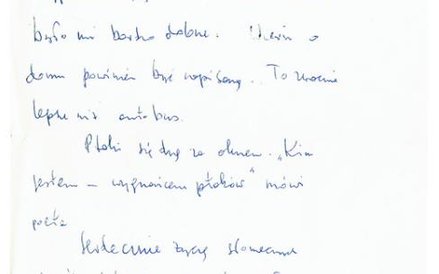 było mi bardzo dobrze. Wiersz o
domu powinien być napisany. To znacznie
lepsze niż autobus.
Ptaki się drą za oknem. „Kim
jestem – wygnańcem ptaków" mówi
poeta
Serdecznie życzę słonecznych